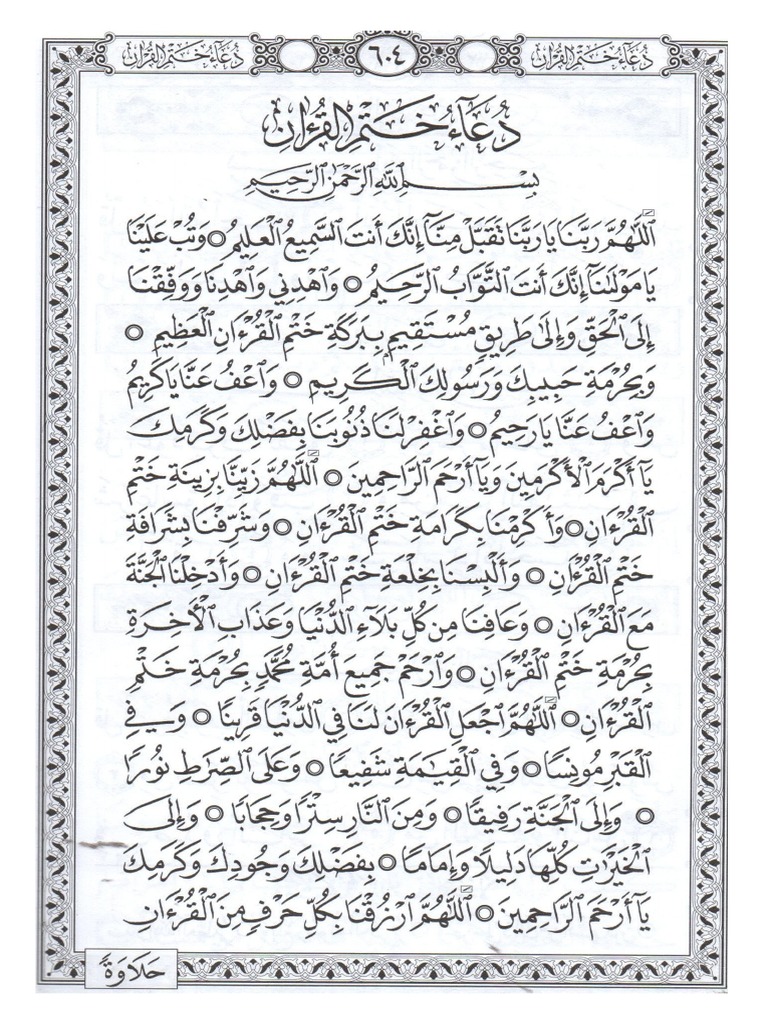 دُعَاءُ خَتْمِ الْقُرْآنِ
٦٠٤
دُعَاءُ خَتْمِ الْقُرْآنِ
دُعَآءُ خَتْمِ الْقُرْءَانِ
بِسْمِ اللَّهِ الرَّحْمَٰنِ الرَّحِيمِ
اَللَّهُمَّ رَبَّنَا يَا رَبَّنَا تَقَبَّلْ مِنَّآ إِنَّكَ أَنتَ السَّمِيعُ الْعَلِيمُ ○ وَتُبْ عَلَيْنَا
يَا مَوْلَىٰنَآ إِنَّكَ أَنتَ التَّوَّابُ الرَّحِيمُ ○ وَاهْدِنِي وَاهْدِنَا وَوَفِّقْنَا
إِلَى الْحَقِّ وَإِلَىٰ طَرِيقٍ مُسْتَقِيمٍ بِبَرَكَةِ خَتْمِ الْقُرْءَانِ الْعَظِيمِ ○
وَبِحُرْمَةِ حَبِيبِكَ وَرَسُولِكَ الْكَرِيمِ ○ وَاعْفُ عَنَّا يَا كَرِيمُ
وَاعْفُ عَنَّا يَا رَحِيمُ ○ وَاغْفِرْ لَنَا ذُنُوبَنَا بِفَضْلِكَ وَكَرَمِكَ
يَآ أَكْرَمَ الْأَكْرَمِينَ وَيَآ أَرْحَمَ الرَّاحِمِينَ ○ اَللَّهُمَّ زَيِّنَّا بِزِينَةِ خَتْمِ
الْقُرْءَانِ ○ وَأَكْرِمْنَا بِكَرَامَةِ خَتْمِ الْقُرْءَانِ ○ وَشَرِّفْنَا بِشَرَافَةِ
خَتْمِ الْقُرْءَانِ ○ وَأَلْبِسْنَا بِخِلْعَةِ خَتْمِ الْقُرْءَانِ ○ وَأَدْخِلْنَا الْجَنَّةَ
مَعَ الْقُرْءَانِ ○ وَعَافِنَا مِن كُلِّ بَلَآءِ الدُّنْيَا وَعَذَابِ الْأَخِرَةِ
بِحُرْمَةِ خَتْمِ الْقُرْءَانِ ○ وَارْحَمْ جَمِيعَ أُمَّةِ مُحَمَّدٍ بِحُرْمَةِ خَتْمِ
الْقُرْءَانِ ○ اَللَّهُمَّ اجْعَلِ الْقُرْءَانَ لَنَا فِي الدُّنْيَا قَرِينًا ○ وَفِي
الْقَبْرِ مُونِسًا ○ وَفِي الْقِيَٰمَةِ شَفِيعًا ○ وَعَلَى الصِّرَٰطِ نُورًا
○ وَإِلَى الْجَنَّةِ رَفِيقًا ○ وَمِنَ النَّارِ سِتْرًا وَحِجَابًا ○ وَإِلَى
الْخَيْرَٰتِ كُلِّهَا دَلِيلًا وَإِمَامًا ○ بِفَضْلِكَ وَجُودِكَ وَكَرَمِكَ
يَآ أَرْحَمَ الرَّاحِمِينَ ○ اَللَّهُمَّ ارْزُقْنَا بِكُلِّ حَرْفٍ مِنَ الْقُرْءَانِ
حَلَاوَةً